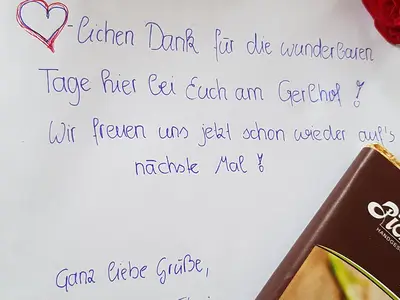 -lichen Dank für die wunderbaren
Tage hier bei Euch am Gerlhof !
Wir freuen uns jetzt schon wieder auf's
nächste Mal !
Ganz liebe Grüße,
HANDGES